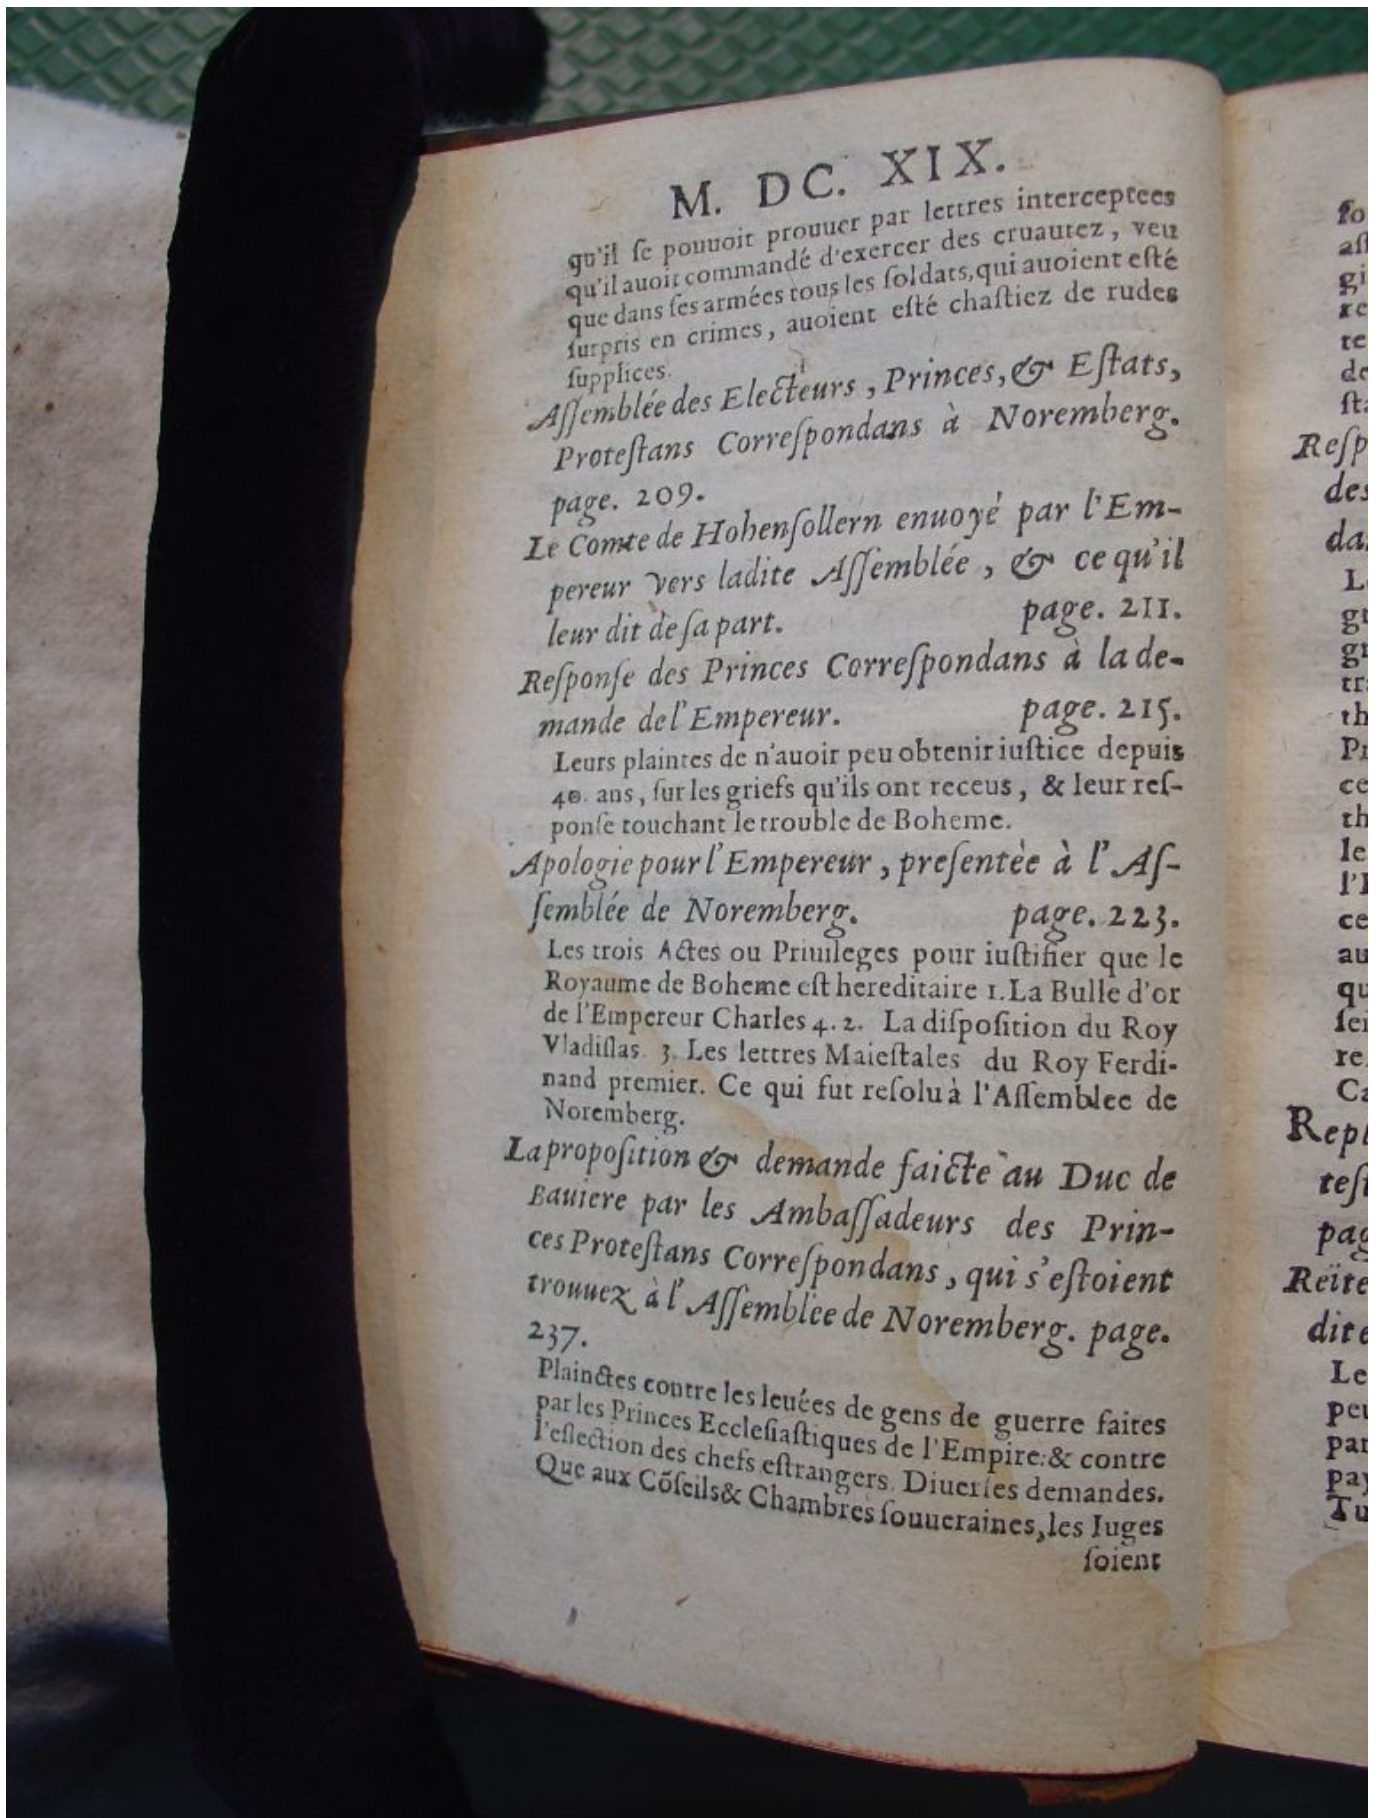 M. DC. XIX.
qu'il ſe pouuoit prouuer par lettres interceptees
qu'il auoit commandé d'exercer des cruautez, veu
que dans ſes armées tous les ſoldats, qui auoient eſté
ſurpris en crimes, auoient eſté chaſtiez de rudes
ſupplices.
Aſſemblée des Electeurs, Princes, & Eſtats,
Proteſtans Correſpondans à Noremberg.
page. 209.
Le Comte de Hohenſollern enuoyé par l'Em-
pereur vers ladite Aſſemblée, & ce qu'il
leur dit de ſa part. page. 211.
Reſponſe des Princes Correſpondans à la de-
mande de l'Empereur. page. 215.
Leurs plaintes de n'auoir peu obtenir iuſtice depuis
40. ans, ſur les griefs qu'ils ont receus, & leur reſ-
ponſe touchant le trouble de Boheme.
Apologie pour l'Empereur, preſentée à l'Aſ-
ſemblée de Noremberg. page. 223.
Les trois Actes ou Priuileges pour iuſtifier que le
Royaume de Boheme eſt hereditaire 1. La Bulle d'or
de l'Empereur Charles 4. 2. La diſpoſition du Roy
Vladiſlas. 3. Les lettres Maieſtales du Roy Ferdi-
nand premier. Ce qui fut reſolu à l'Aſſemblee de
Noremberg.
La propoſition & demande faicte au Duc de
Bauiere par les Ambaſſadeurs des Prin-
ces Proteſtans Correſpondans, qui s'eſtoient
trouuez à l'Aſſemblée de Noremberg. page.
237.
Plainctes contre les leuées de gens de guerre faites
par les Princes Eccleſiaſtiques de l'Empire: & contre
l'eſlection des chefs eſtrangers. Diuerſes demandes.
Que aux Cõſeils & Chambres ſouueraines, les Iuges
ſoient